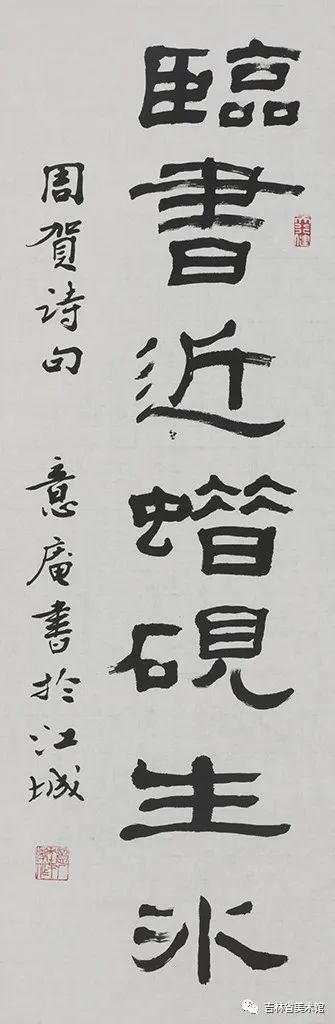 臨書近蜡硯生冰
周賀诗句 意廣書於江城
吉林省美术馆